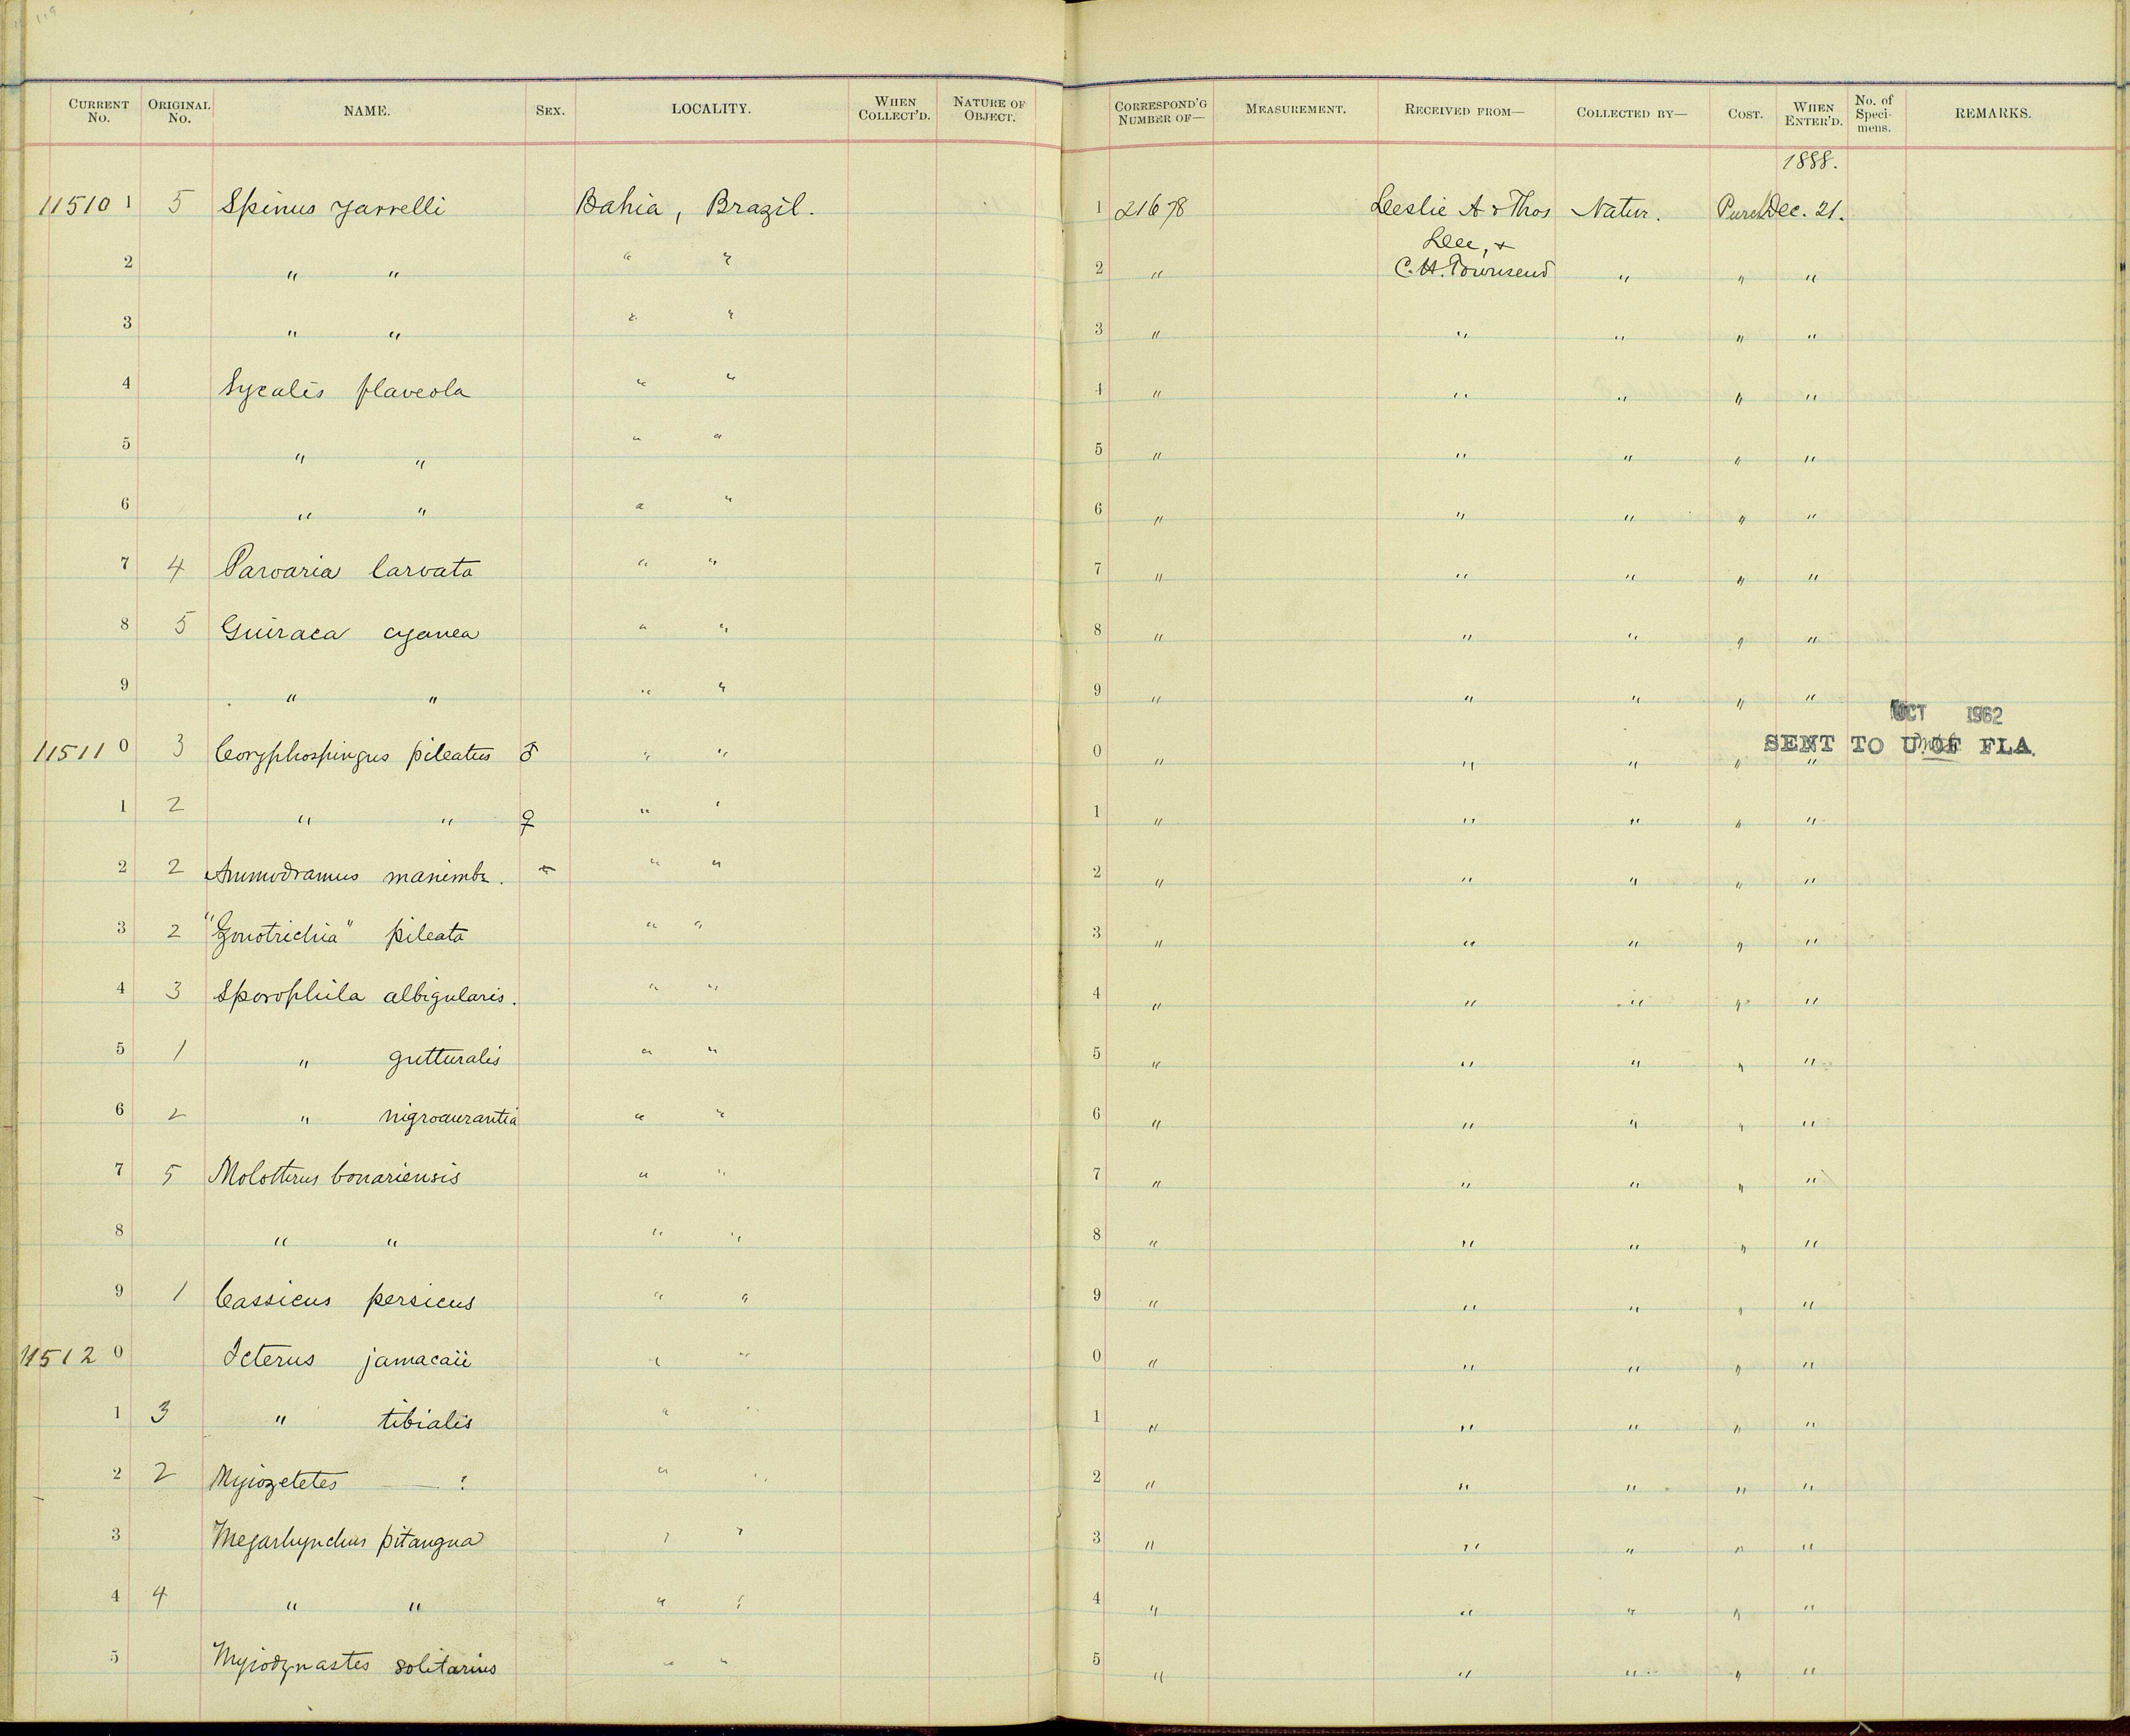 119
CURRENT No. ORIGINAL No. NAME. SEX. LOCALITY. WHEN COLLECT'D. NATURE OF OBJECT. CORRESPOND'G NUMBER OF— MEASUREMENT. RECEIVED FROM— COLLECTED BY— COST. WHEN ENTER'D. No. of Specimens. REMARKS.
1888.
11510 1 5 Spinus yarrelli Bahia, Brazil. 1 21678 Leslie A & Thos Natur. Purch Dec. 21.
Lee, &
2 " " " " 2 " C. H. Townsend " " "
3 " " " " 3 " " " " "
4 Sycalis flaveola " " 4 " " " " "
5 " " " " 5 " " " " "
6 " " " " 6 " " " " "
7 4 Paroaria larvata " " 7 " " " " "
8 5 Guiraca cyanea " " 8 " " " " "
9 " " " " 9 " " " " "
OCT 1962
11511 0 3 Coryphospingus pileatus ♂ " " 0 " " " " " SENT TO U. OF FLA.
1 2 " " ♀ " " 1 " " " " "
2 2 Ammodramus manimbe. " " 2 " " " " "
3 2 "Zonotrichia" pileata " " 3 " " " " "
4 3 Sporophila albigularis. " " 4 " " " " "
5 1 " gutturalis " " 5 " " " " "
6 2 " nigroaurantia " " 6 " " " " "
7 5 Molothrus bonariensis " " 7 " " " " "
8 " " " " 8 " " " " "
9 1 Cassicus persicus " " 9 " " " " "
11512 0 Icterus jamacaii " " 0 " " " " "
1 3 " tibialis " " 1 " " " " "
2 2 Myiozetetes — ? " " 2 " " " " "
3 Megarhynchus pitangua " " 3 " " " " "
4 4 " " " " 4 " " " " "
5 Myiodynastes solitarius " " 5 " " " " "